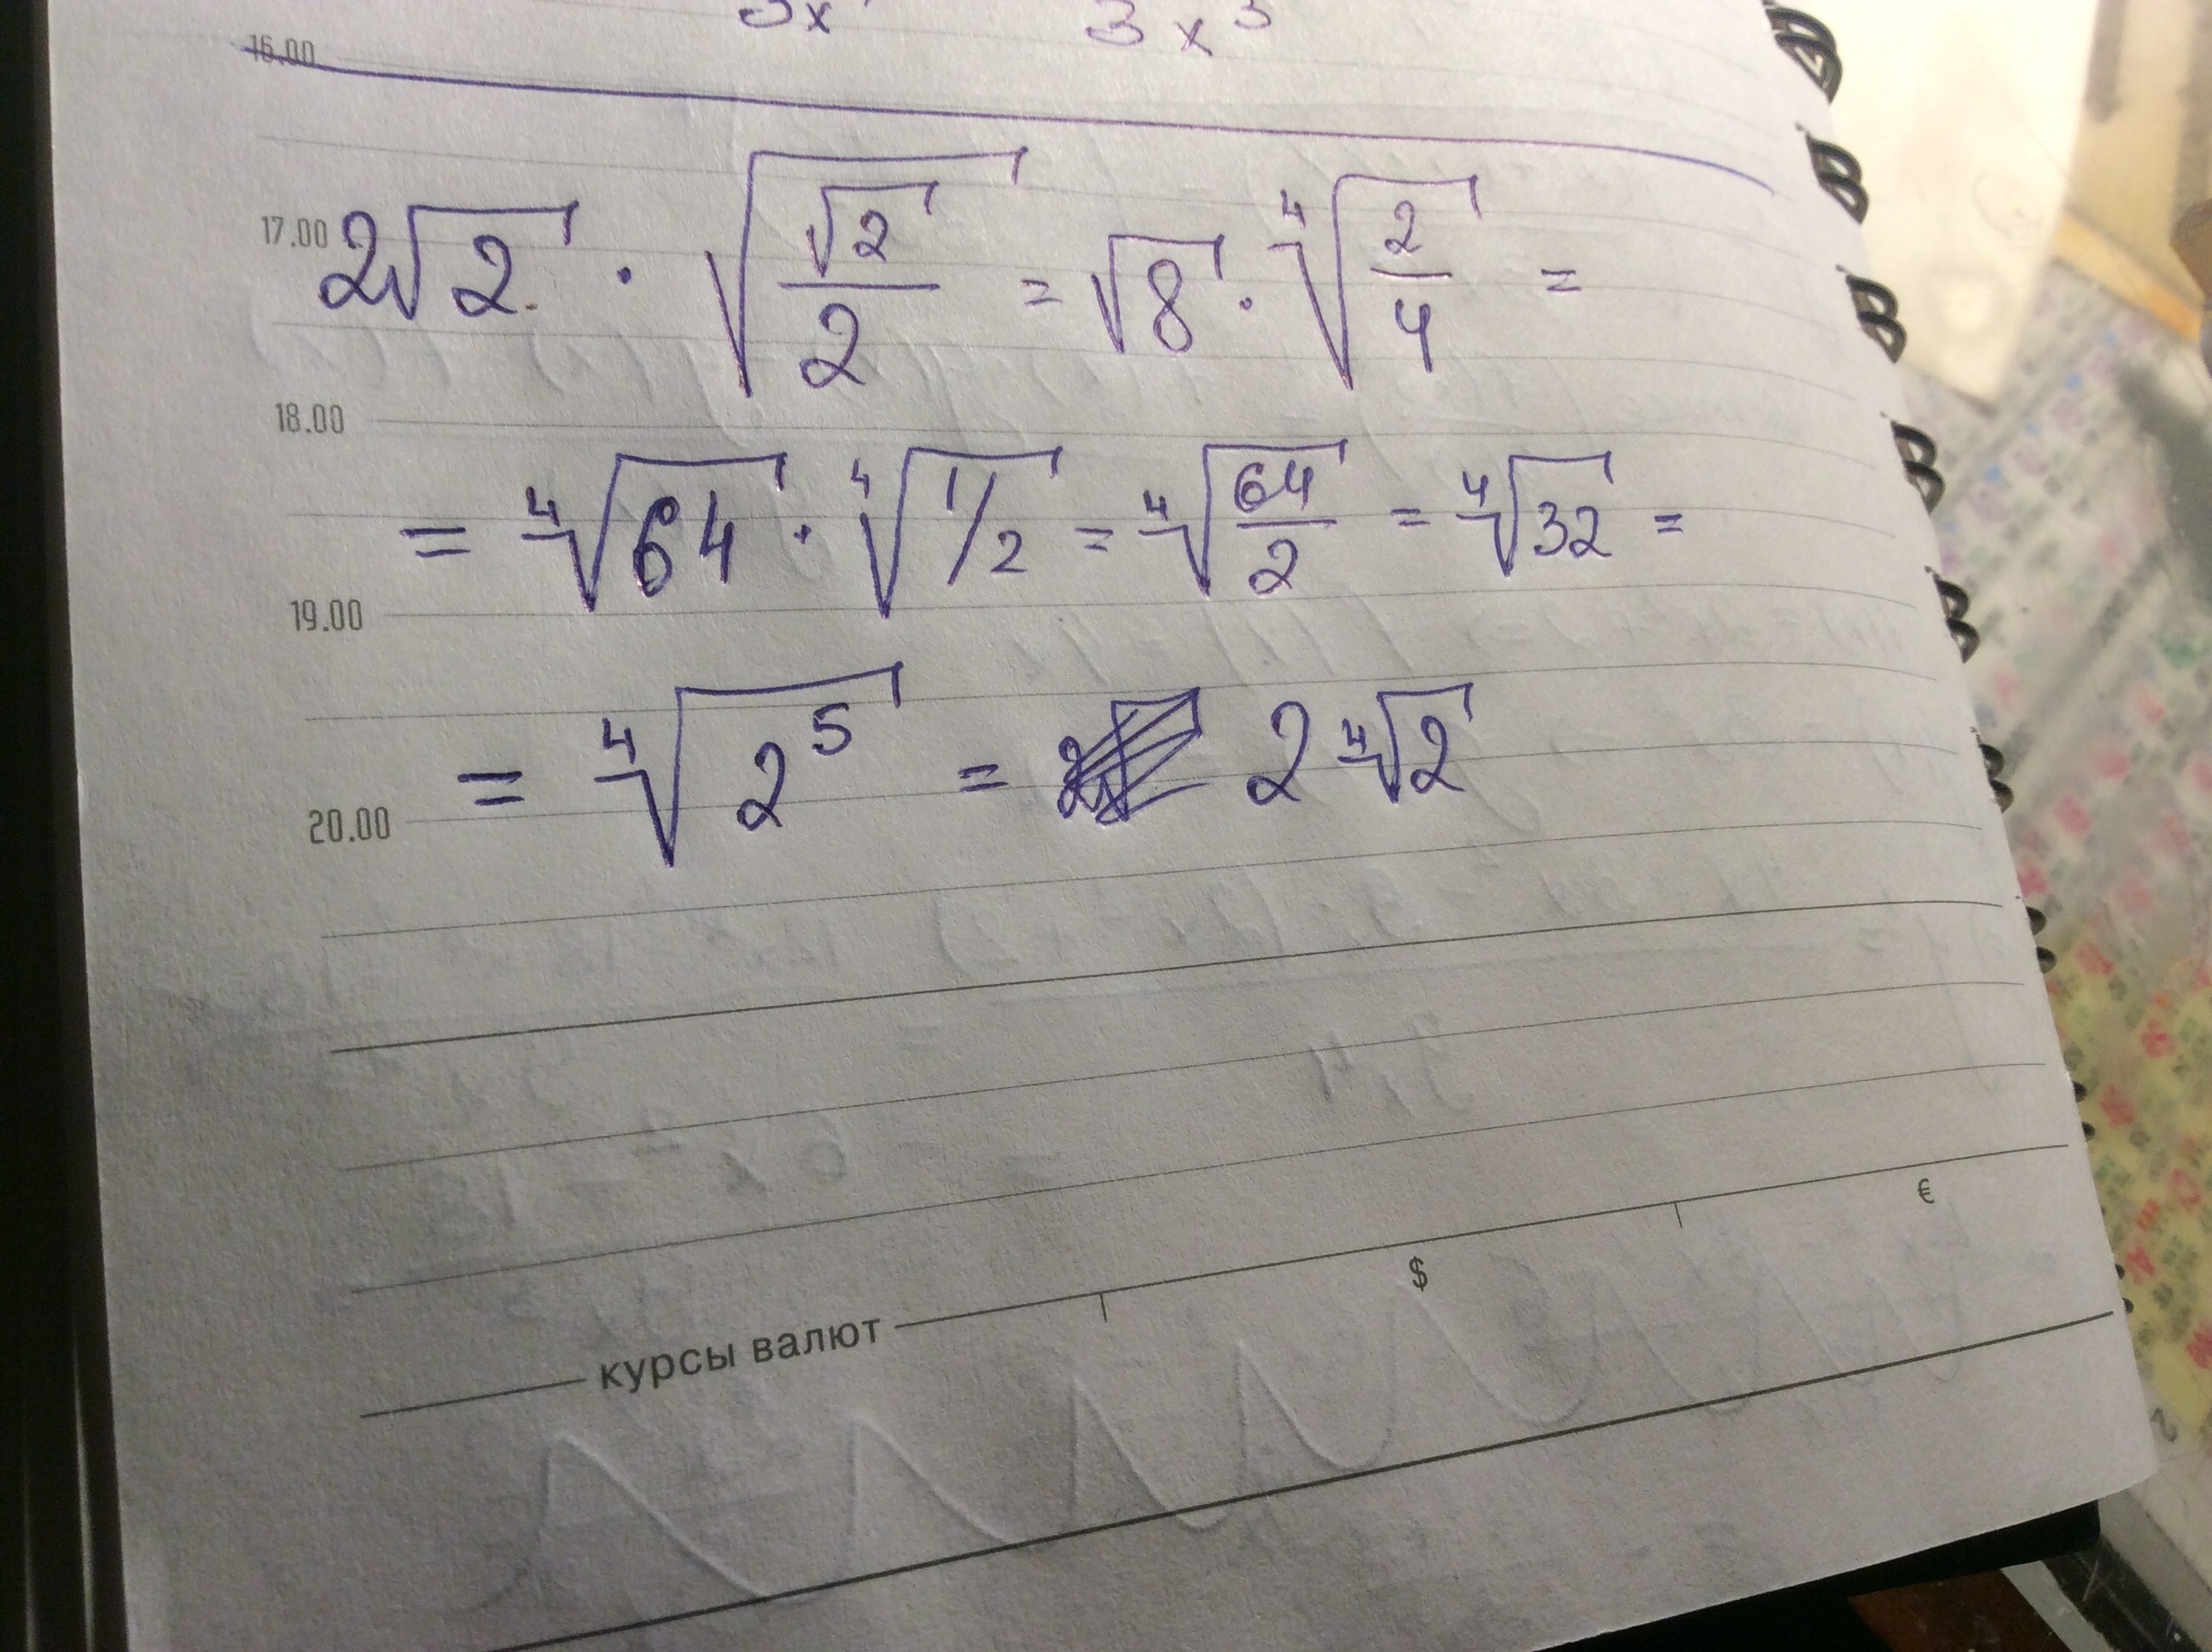 3x 3x³
16.00
17.00 2√2 · √(√2/2) = √8 · ⁴√(2/4) =
18.00
= ⁴√64 · ⁴√(1/2) = ⁴√(64/2) = ⁴√32 =
19.00
= ⁴√(2⁵) = 2 ⁴√2
20.00
€
$
курсы валют